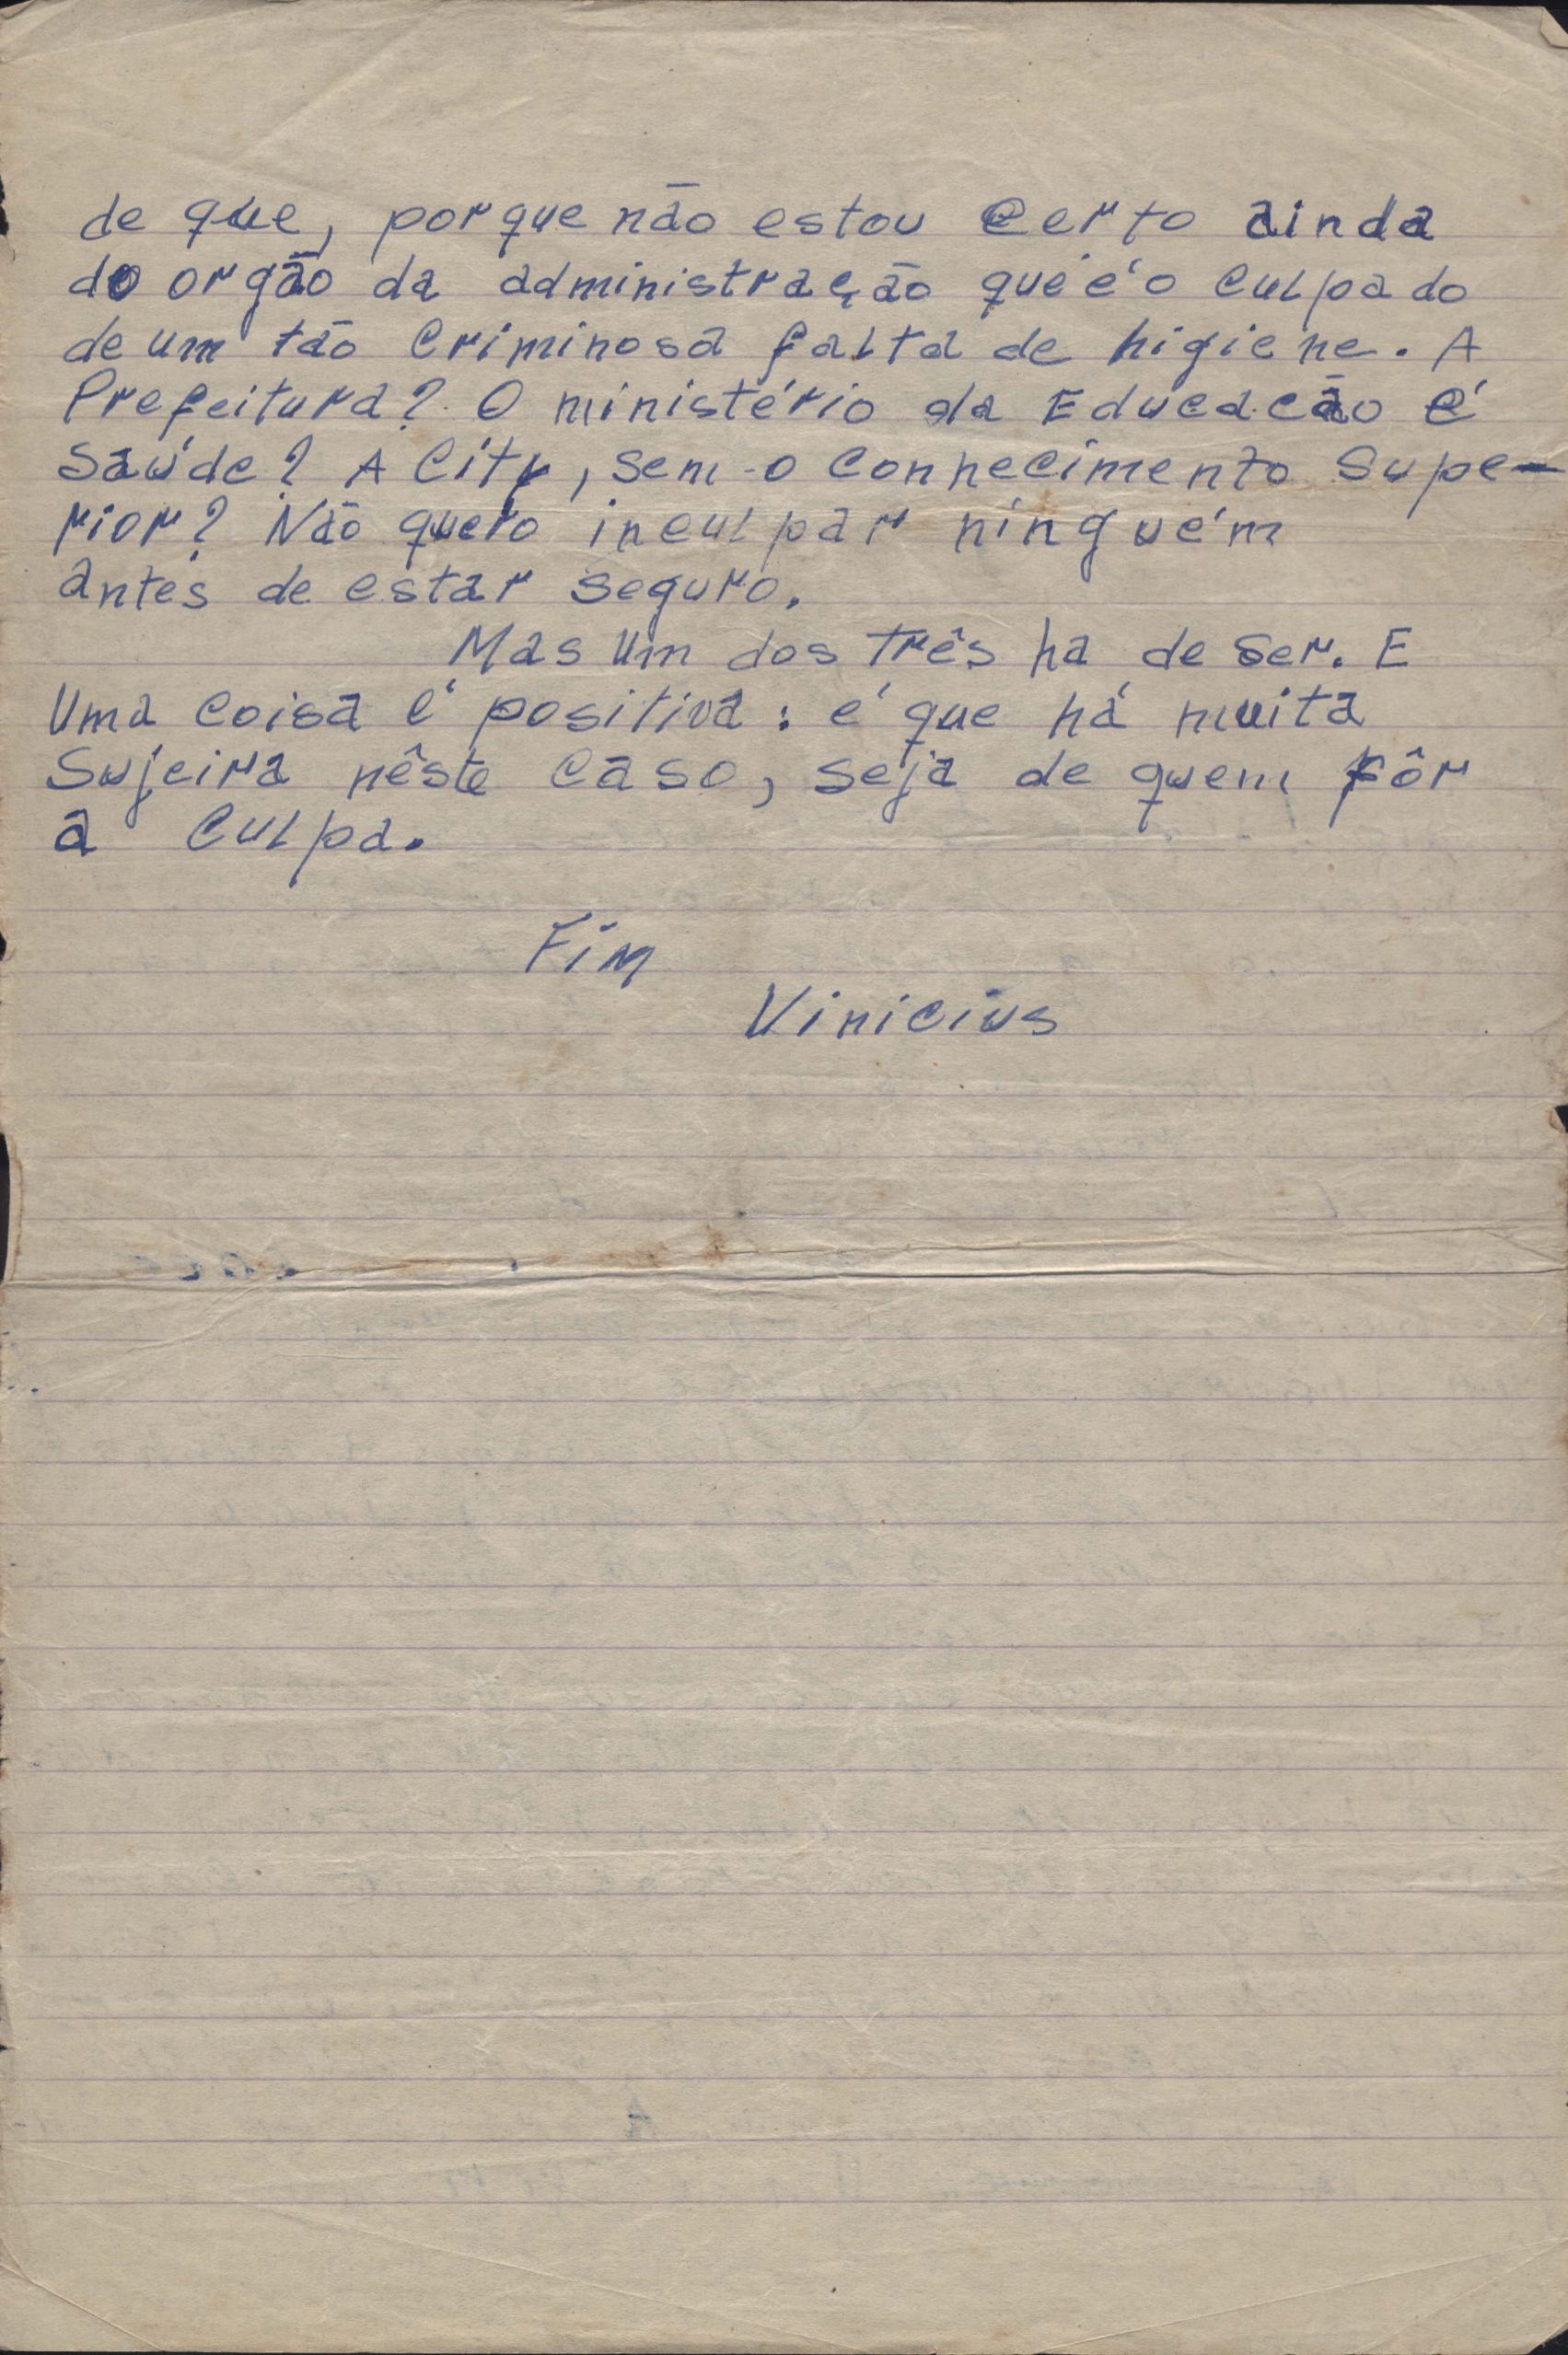 de que, porque não estou certo ainda
do orgão da administração que é o culpado
de um tão criminosa falta de higiene. A
Prefeitura? O ministério da Educacão é
Saúde? A City, sem o conhecimento supe-
rior? Não quero inculpar ninguém
antes de estar seguro.
Mas um dos três ha de ser. E
uma coisa é positiva: é que há muita
sujeira nêste caso, seja de quem fôr
a culpa.
Fim
Vinicius